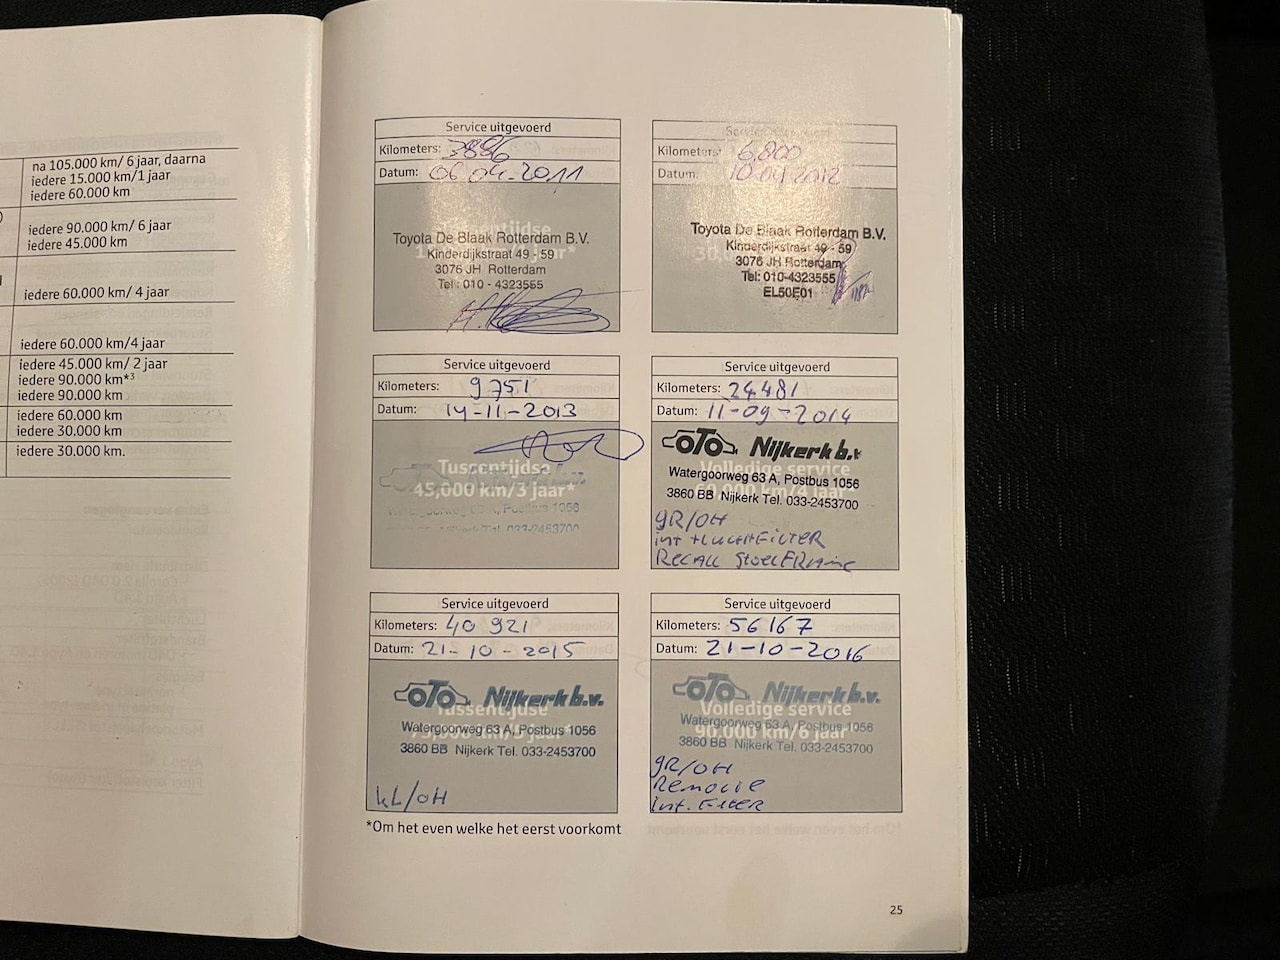 na 105.000 km/ 6 jaar, daarna
iedere 15.000 km/1 jaar
iedere 60.000 km
iedere 90.000 km/ 6 jaar
iedere 45.000 km
iedere 60.000 km/ 4 jaar
iedere 60.000 km/4 jaar
iedere 45.000 km/ 2 jaar
iedere 90.000 km*3
iedere 90.000 km
iedere 60.000 km
iedere 30.000 km
iedere 30.000 km.
Service uitgevoerd
Kilometers: 3886
Datum: 06-04-2011
Toyota De Blaak Rotterdam B.V.
Kinderdijkstraat 49 - 59
3076 JH Rotterdam
Tel: 010 - 4323555
Service uitgevoerd
Kilometers: 6.800
Datum: 10-04-2012
Toyota De Blaak Rotterdam B.V.
Kinderdijkstraat 49 - 59
3076 JH Rotterdam
Tel: 010-4323555
EL50E01
Service uitgevoerd
Kilometers: 9751
Datum: 14-11-2013
Tussentijdse
45,000 km/3 jaar*
Watergoorweg 63 A, Postbus 1056
3860 BB Nijkerk Tel. 033-2453700
Service uitgevoerd
Kilometers: 24481
Datum: 11-09-2014
OTO Nijkerk b.v.
Volledige service
Watergoorweg 63 A, Postbus 1056
60.000 km/4 jaar*
3860 BB Nijkerk Tel. 033-2453700
GR/OH
int + LUCHTFILTER
RECALL StoelFRAme
Service uitgevoerd
Kilometers: 40 921
Datum: 21-10-2015
OTO Nijkerk b.v.
Tussentijdse
Watergoorweg 63 A, Postbus 1056
75,000 km/5 jaar*
3860 BB Nijkerk Tel. 033-2453700
KL/OH
Service uitgevoerd
Kilometers: 56167
Datum: 21-10-2016
OTO Nijkerk b.v.
Volledige service
Watergoorweg 63 A, Postbus 1056
90.000 km/6 jaar*
3860 BB Nijkerk Tel. 033-2453700
GR/OH
Remolie
Int. Filter
*Om het even welke het eerst voorkomt
25